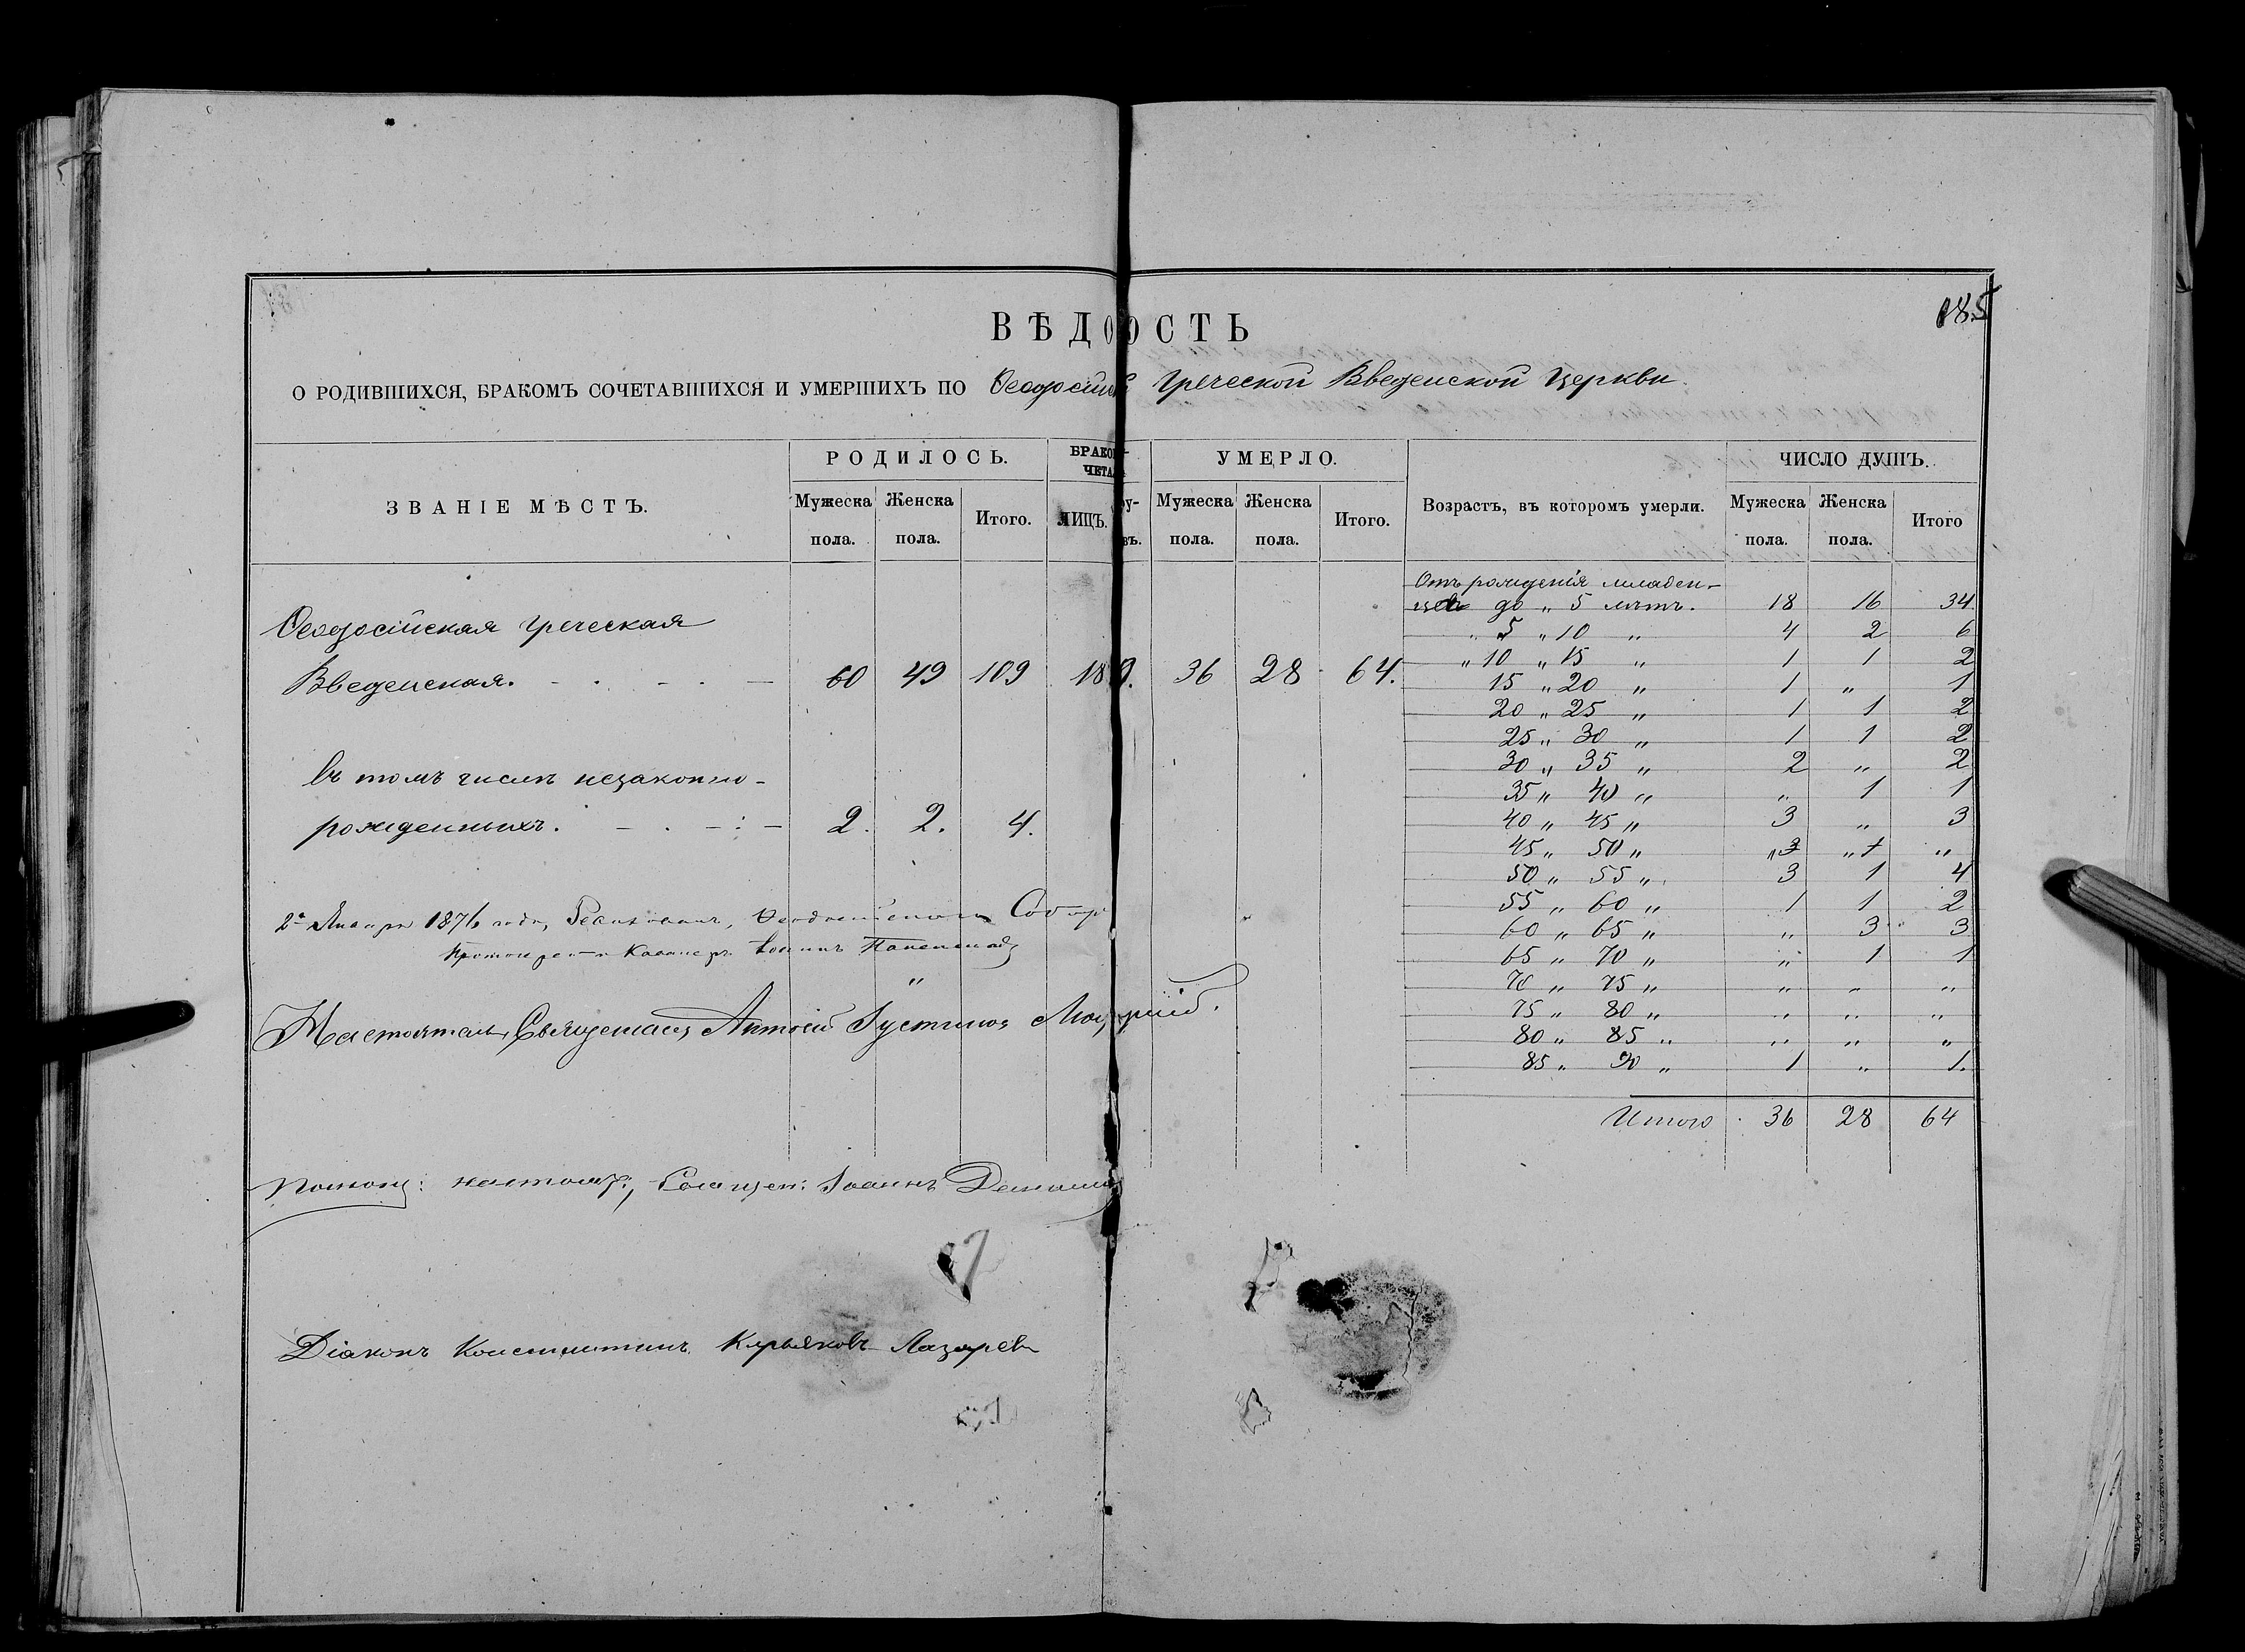 185
ВѢДО ОСТЬ
О РОДИВШИХСЯ, БРАКОМЪ СОЧЕТАВШИХСЯ И УМЕРШИХЪ ПО Ѳеодосійск Греческой Введенской Церкви.
ЗВАНІЕ МѢСТЪ.
РОДИЛОСЬ.
Мужеска пола.
Женска пола.
Итого.
БРАКО
ЧЕТА
ЛИЦЪ.
УМЕРЛО.
Мужеска пола.
Женска пола.
Итого.
Возрастъ, въ которомъ умерли.
ЧИСЛО ДУШЪ.
Мужеска пола.
Женска пола.
Итого
Ѳеодосійская Греческая
Введенская. 60 49 109 18 9. 36 28 64.
въ томъ числѣ незаконно-
рожденныхъ. 2. 2. 4.
Отъ рожденія младен-
цевъ до „ 5 лѣтъ. 18 16 34.
„ 5 „ 10 „ 4 2 6
„ 10 „ 15 „ 1 1 2
15 „ 20 „ 1 „ 1
20 „ 25 „ 1 1 2
25 „ 30 „ 1 1 2
30 „ 35 „ 2 „ 2
35 „ 40 „ „ 1 1
40 „ 45 „ 3 „ 3
45 „ 50 „ „ „ „
50 „ 55 „ 3 1 4
55 „ 60 „ 1 1 2
60 „ 65 „ „ 3 3
65 „ 70 „ „ 1 1
70 „ 75 „ „ „ „
75 „ 80 „ „ „ „
80 „ 85 „ „ „ „
85 „ 90 „ 1 „ 1.
Итого 36 28 64
2º Января 1876 года,
Іоаннъ
Настоятель, Священникъ Антоній Іустинов
Помощ: настоят:, Священ: Іоаннъ
Діаконъ Константинъ Курьяковъ Лазаревъ